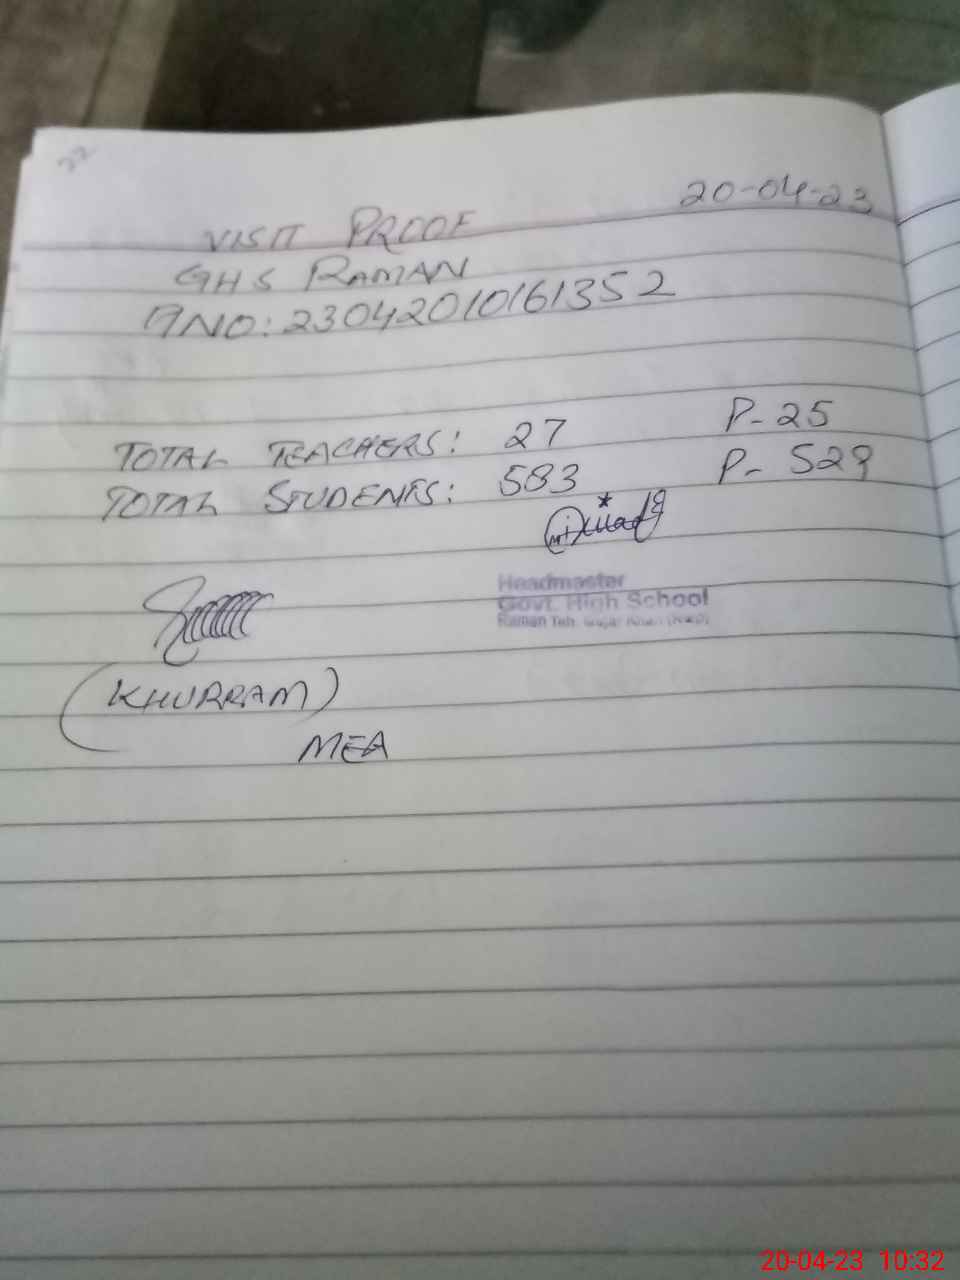 22
20-04-23
VISIT PROOF
GHS RAMAN
ANO: 23042010161352
TOTAL TEACHERS: 27 P- 25
TOTAL STUDENTS: 583 P- 529
Headmaster
Govt. High School
Raman Teh. Gujar Khan (Rwp)
(KHURRAM)
MEA
20-04-23 10:32